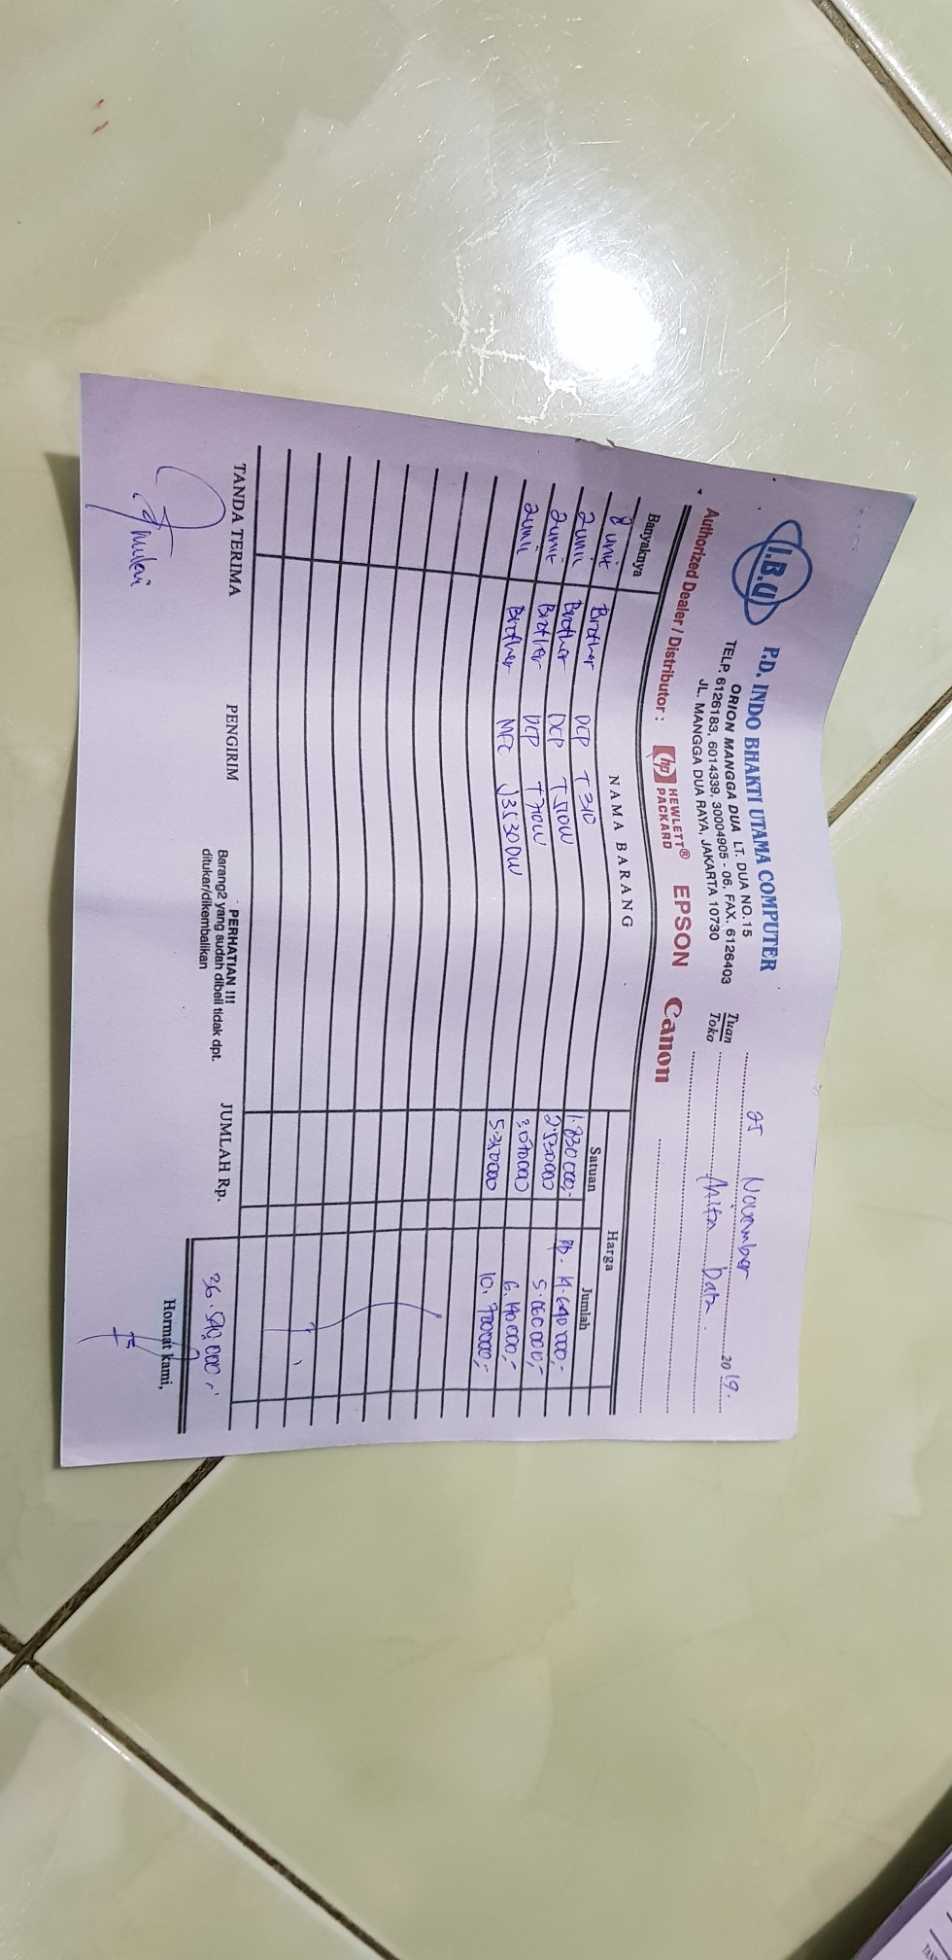 I.B.U
P.D. INDO BHAKTI UTAMA COMPUTER
ORION MANGGA DUA LT. DUA NO.15
TELP. 6126183, 6014339, 30004905 - 06, FAX. 6126403
JL. MANGGA DUA RAYA, JAKARTA 10730
25 November 2019.
Tuan
Toko
Mitra Data.
Authorized Dealer / Distributor : hp HEWLETT® PACKARD EPSON Canon
Banyaknya NAMA BARANG Harga
Satuan Jumlah
8 unit Brother DCP T310 1.830000,- Rp. 14.640.000,-
2 unit Brother DCP T510W 2.530000 5.060000,-
2 unit Brother DCP T710W 3.070000 6.140.000,-
2 unit Brother MFC J3530DW 5.350000 10.700000,-
TANDA TERIMA PENGIRIM PERHATIAN !!! JUMLAH Rp. 36.540.000,-
Barang2 yang sudah dibeli tidak dpt.
ditukar/dikembalikan
Hormat kami,